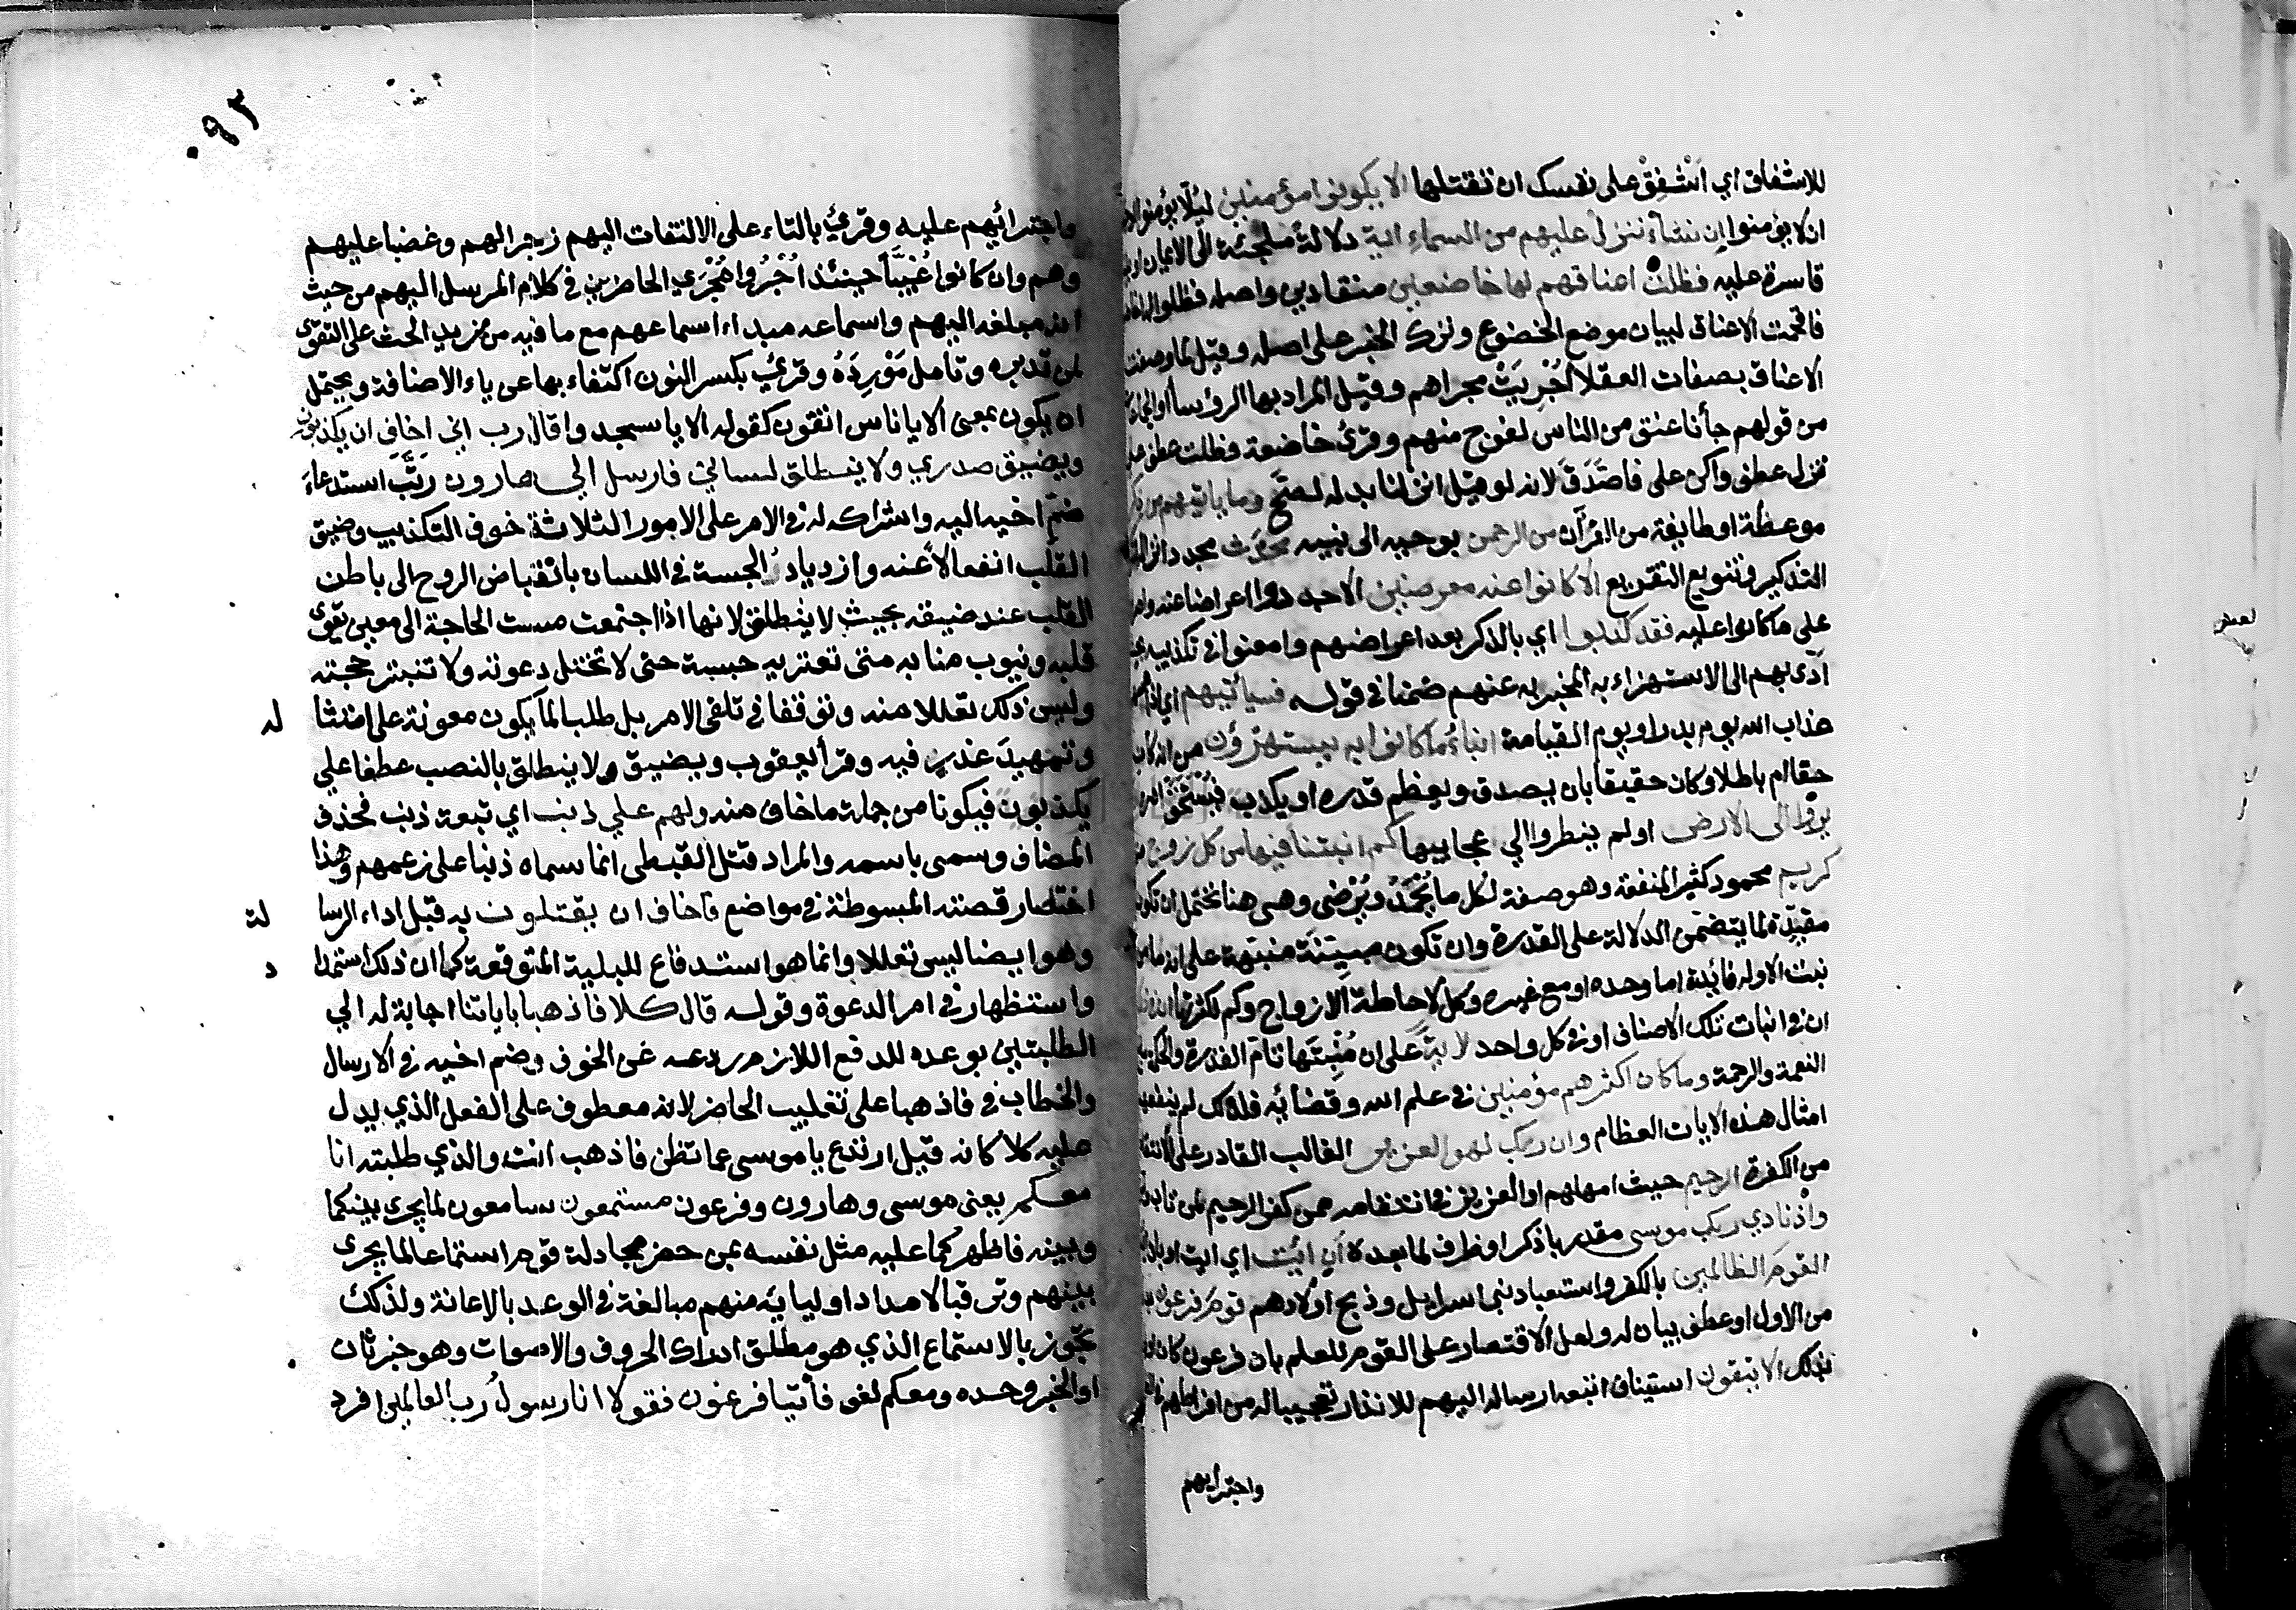 للاشفاق اي اشفق على نفسك ان تقتلها الا يكونوا مؤمنين ليلا يؤمنوا او
ان لا يؤمنوا ان نشأ ننزل عليهم من السماء اية دلالة ملجئة الى الايمان او
قاسرة عليه فظلت اعناقهم لها خاضعين منقادين واصله فظلوا لها
فاقحمت الاعناق لبيان موضع الخضوع وترك الخبر على اصله وقيل لما وصفت
الاعناق بصفات العقلا اجريت مجراهم وقيل المراد بها الرؤسا او الجماعات
من قولهم جأنا عنق من الناس لفوج منهم وقرئ خاضعة فظلت عطف على
ننزل عطف واكن على فاصدق لانه لو قيل انزلنا بدله لصح وما ياتيهم من ذكر
موعظة او طايفة من القرآن من الرحمن بوحيه الى نبيه محدث مجدد انزاله
التذكير وتنويع التقريع الا كانوا عنه معرضين الا جددوا اعراضا عنه
على ما كانوا عليه فقد كذبوا اي بالذكر بعد اعراضهم وامعنوا في تكذيبه
ادى بهم الى الاستهزاء به المخبر به عنهم ضمنا في قوله فسياتيهم اي اذا
عذاب الله يوم بدر او يوم القيامة انباء ما كانوا به يستهزؤن من انه كان
حقا ام باطلا وكان حقيقا بان يصدق ويعظم قدره او يكذب فيستخف
يروا الى الارض اولم ينظروا الي عجايبها كم انبتنا فيها من كل زوج
كريم محمود كثير المنفعة وهو صفة لكل ما يحمد ويرضى وهي هنا تحتمل ان تكون
مقيدة لما يتضمن الدلالة على القدرة وان تكون مبينة منبهة على انه ما من
نبت الا وله فائدة اما وحده او مع غيره وكل لاحاطة الازواج وكم لكثرتها ان في
ان في انبات تلك الاصناف او في كل واحد لاية على ان منبتها تام القدرة والحكمة
النعمة والرحمة وما كان اكثرهم مؤمنين في علم الله وقضائه فلذلك لم ينفعهم
امثال هذه الايات العظام وان ربك لهو العزيز الغالب القادر على الانتقام
من الكفرة الرحيم حيث امهلهم او العزيز في انتقامه ممن كفر الرحيم لمن تاب
واذ نادي ربك موسى مقدر باذكر او ظرف لما بعده ان ائت اي ايت او بان
القوم الظالمين بالكفر واستعباد بني اسرايل وذبح اولادهم قوم فرعون
من الاول او عطف بيان له ولعل الاقتصار على القوم للعلم بان فرعون كان
بذلك الا يتقون استيناف اتبعه ارساله اليهم للانذار تعجيبا له من افراطهم
واجترايهم
٠٩٢
واجترائهم عليه وقرئ بالتاء على الالتفات اليهم زجرا لهم وغضبا عليهم
وهم وان كانوا غيبا حينئذ اجروا مجري الحاضرين في كلام المرسل اليهم من حيث
انه مبلغه اليهم واسماعه مبداء اسماعهم مع ما فيه من مزيد الحث على التقوى
لمن تدبره وتامل مورده وقرئ بكسر النون اكتفاء بها عن ياء الاضافة ويحتمل
ان يكون بمعنى الا يا ناس اتقون كقوله الا يا سجدوا قال رب اني اخاف ان يكذبون
ويضيق صدري ولا ينطلق لساني فارسل الي هارون رتب استدعاء
ضم اخيه اليه واشراكه له في الامر على الامور الثلاثة خوف التكذيب وضيق
القلب انفعالا عنه وازدياد الحبسة في اللسان بانقباض الروح الى باطن
القلب عند ضيقه بحيث لا ينطلق لانها اذا اجتمعت مست الحاجة الى معين يقوى
قلبه وينوب منابه متى تعتريه حبسة حتى لا تختل دعوته ولا تنبتر حجته
وليس ذلك تعللا منه وتوقفا في تلقي الامر بل طلبا لما يكون معونة على امتثا له
وتمهيد عذر فيه وقرأ يعقوب ويضيق ولا ينطلق بالنصب عطفا على
يكذبون فيكونا من جملة ما خاف منه ولهم علي ذنب اي تبعة ذنب فحذف
المضاف وسمى باسمه والمراد قتل القبطى انما سماه ذنبا على زعمهم وهذا
اختصار قصته المبسوطة في مواضع فاخاف ان يقتلون به قبل اداء الرسا لة
وهو ايضا ليس تعللا وانما هو استدفاع للبلية المتوقعة كما ان ذلك استمدا د
واستظهار في امر الدعوة وقوله قال كلا فاذهبا باياتنا اجابة له الي
الطلبتين بوعده للدفع اللازم ردعه عن الخوف وضم اخيه في الارسال
والخطاب في فاذهبا على تغليب الحاضر لانه معطوف على الفعل الذي يدل
عليه كلا كانه قيل ارتدع يا موسى عما تظن فاذهب انت والذي طلبته انا
معكم يعنى موسى وهارون وفرعون مستمعون سامعون لما يجري بينكما
وبينه فاظهركما عليه مثل نفسه بمن حضر مجادلة قوم استماعا لما يجرى
بينهم وترقبا لامداد اوليائه منهم مبالغة في الوعد بالاعانة ولذلك
تجوز بالاستماع الذي هو مطلق ادراك الحروف والاصوات وهو خبر ثان
او الخبر وحده ومعكم لغو فأتيا فرعون فقولا انا رسول رب العالمين افرد